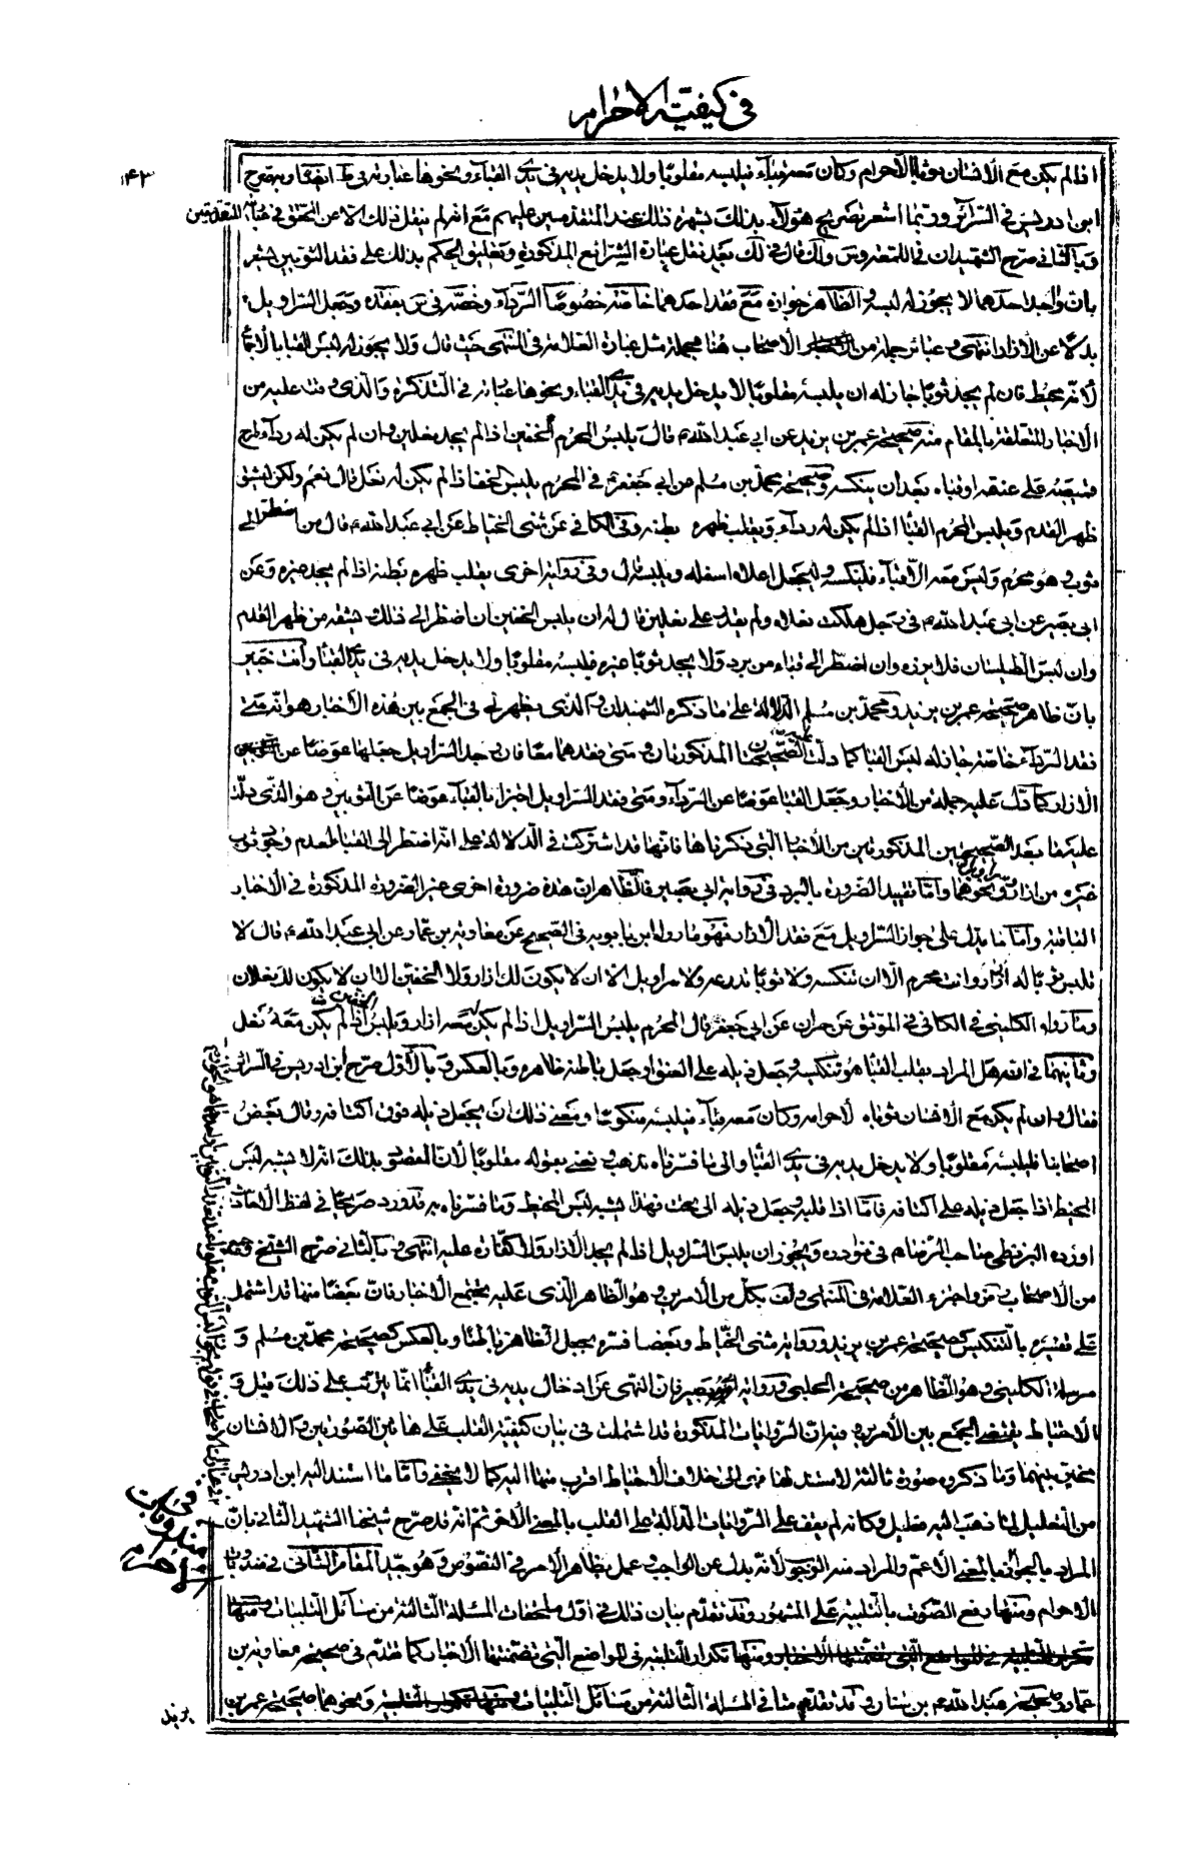 في كيفية الاحرام
۱۴۳
اذا لم يكن مع الانسان ثوبا الاحرام وكان معه قباء فيلبسه مقلوبا ولا يدخل يديه في يدي القباء ونحوها عبارته في ط انتهى وبه صرح
ابن ادريس في السرائر وربما اشعر تصريح هؤلاء بذلك بشهرة ذلك عند المتقدمين عليهم مع انه لم ينقل ذلك الا عن المحقق في المتقدمين
وبالثاني صرح الشهيدان في اللمعة وض ولك قال في لك بعد نقل عبارة الشرائع المذكورة وتعليق الحكم بذلك على فقد الثوبين مشعر
بان واجد احدهما لا يجوز له لبسه والظاهر جوازه مع فقد احدهما خاصة خصوصا الرداء وخصه في س بفقده وجعل السراويل
بدلا عن الازار انتهى وعبائر جملة من الاصحاب هنا مجملة مثل عبارة العلامة في المنتهى حيث قال ولا يجوز له لبس القبا بالاجماع
لانه مخيط فان لم يجد ثوبا جاز له ان يلبسه مقلوبا لا يدخل يديه في يدي القباء ونحوها عبارته في التذكرة والذي وقفت عليه من
الاخبار المتعلقة بالمقام منه صحيحة عمر بن يزيد عن ابي عبد الله ع قال يلبس المحرم الخفين اذا لم يجد نعلين وان لم يكن له رداء طرح
قميصه على عنقه او قباه بعد ان ينكسه وصحيحة محمد بن مسلم عن ابي جعفر ع في المحرم يلبس الخف اذا لم يكن له نعل قال نعم ولكن يشق
ظهر القدم ويلبس المحرم القبا اذا لم يكن له رداء ويقلب ظهره بطنه وفي الكافي عن مثنى الخياط عن ابي عبد الله ع قال من اضطر الى
ثوب وهو محرم وليس معه الا قباء فلينكسه وليجعل اعلاه اسفله ويلبسه قال وفي رواية اخرى يقلب ظهره بطنه اذا لم يجد غيره وعن
ابي بصير عن ابي عبد الله ع في رجل هلكت نعلاه ولم يقدر على نعلين قال له ان يلبس الخفين ان اضطر الى ذلك وليشقه من ظهر القدم
وان لبس الطيلسان فلا يزره وان اضطر الى قباء من برد ولا يجد ثوبا غيره فليلبسه مقلوبا ولا يدخل يديه في يدي القبا وانت خبير
بان ظاهر صحيحة عمر بن يزيد ومحمد بن مسلم الدلالة على ما ذكره الشهيدان والذي يظهر لي في الجمع بين هذه الاخبار هو انه متى
فقد الرداء خاصة جاز له لبس القبا كما دلت عليه الصحيحتان المذكورتان ومتى فقدهما معا فان وجد السراويل جعلها عوضا عن
الازار كما دل عليه جملة من الاخبار وجعل القبا عوضا عن الرداء ومتى فقد السراويل اجتزا بالقباء عوضا عن الثوبين وهو الذي دلت
عليه ما بعد الصحيحين المذكورتين من الاخبار التي ذكرناها فانها قد اشتركت في الدلالة على انه اضطر الى القبا لعدم وجود ثوب
غيره من ازار وسراويل ونحوهما واما تقييد الضرورة بالبرد في رواية ابي بصير فالظاهر ان هذه ضرورة اخرى غير الضرورة المذكورة في الاخبار
الباقية واما ما يدل على جواز السراويل مع فقد الازار فهو ما رواه ابن بابويه في الصحيح عن معاوية بن عمار عن ابي عبد الله ع قال لا
تلبس ثوبا له ازرار وانت محرم الا ان تنكسه ولا ثوبا تدرعه ولا سراويل الا ان لا يكون لك ازار ولا الخفين الا ان لا يكون لك نعلان
وما رواه الكليني في الكافي في الموثق عن حمران عن ابي جعفر قال المحرم يلبس السراويل اذا لم يكن معه ازار ويلبس الخفين اذا لم يكن معه نعل
وثانيهما في انه هل المراد بقلب القبا هو تنكيسه وجعل ذيله على العنق او جعل باطنه ظاهره وبالعكس وبالاول صرح ابن ادريس في السرائر
فقال وان لم يكن مع الانسان ثوباه لاحرامه وكان معه قباء فيلبسه منكوسا ومعنى ذلك ان يجعل ذيله فوق اكتافه وقال بعض
اصحابنا فليلبسه مقلوبا ولا يدخل يديه في يدي القبا والى ما فسرناه نذهب ونعني بقوله مقلوبا لان المقصود بذلك انه لا يشبه لبس
المخيط اذا جعل ذيله على اكتافه فاما اذا قلبه وجعل ذيله الى تحت فهذا يشبه لبس المخيط وما فسرناه به قد ورد صريحا في لفظ الاحاديث
اورده البزنطي صاحب الرضا ع في نوادره ويجوز ان يلبس السراويل اذا لم يجد الازار ولا كفارة عليه انتهى وبالثاني صرح الشيخ وجمع
من الاصحاب ره واجتزء العلامة في المنتهى ولف بكل من الامرين وهو الظاهر الذي عليه تجتمع الاخبار فان بعضا منها قد اشتمل
على تفسيره بالتنكيس كصحيحة عمر بن يزيد ورواية مثنى الخياط وبعضا فسره بجعل الظاهر باطنا وبالعكس كصحيحة محمد بن مسلم و
مرسلة الكليني وهو الظاهر من صحيحة الحلبي ورواية ابي بصير فان النهي عن ادخال يديه في يدي القبا انما يترتب على ذلك قيل و
الاحتياط يقتضي الجمع بين الامرين وفيه ان الروايات المذكورة قد اشتملت في بيان كيفية القلب على هاتين الصورتين والانسان
مخير بينهما وما ذكروه صورة ثالثة لا مستند لها فهي الى خلاف الاحتياط اقرب منها اليه كما لا يخفى واما ما استند اليه ابن ادريس
من التعليل لما ذهب اليه فعليل وكانه لم يقف على الروايات الدالة على القلب بالمعنى الاخر ثم انه قد صرح شيخنا الشهيد الثاني بان
المراد بالجواز بالمعنى الاعم والمراد منه الوجوب لانه بدل عن الواجب وعمل بظاهر الامر في النصوص وهو جيد المقام الثاني في مندوبات
الاحرام ومنها رفع الصوت بالتلبية على المشهور وقد تقدم بيان ذلك في اول ملحقات المسئلة الثالثة من مسائل التلبيات ومنها
ومنها تكرار التلبية في المواضع التي تضمنتها الاخبار كما تقدم في صحيحة معاوية بن
عمار وصحيحة عبد الله بن سنان وقد تقدم متنا في المسئلة الثالثة من مسائل التلبيات ونحوهما صحيحة عمر بن
يزيد
في مندوبات
الاحرام